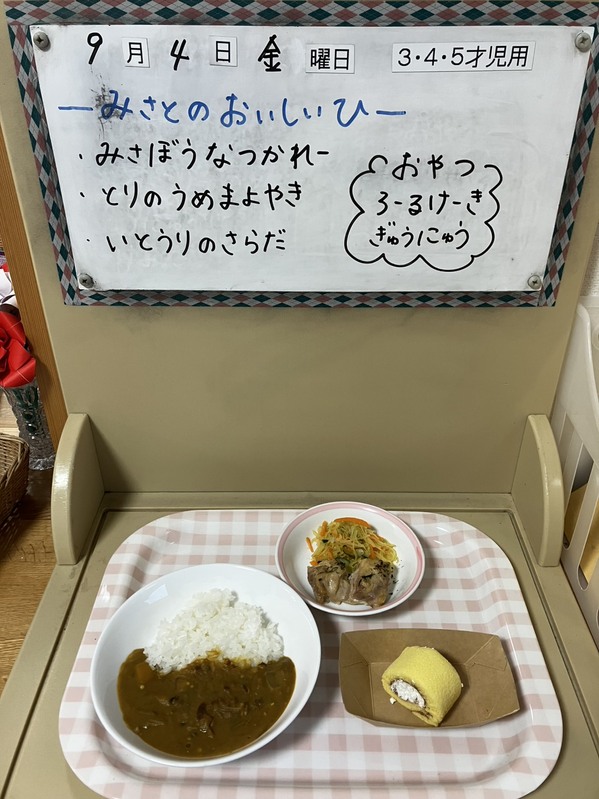 9月4日金曜日 3・4・5才児用
―みさとのおいしいひ―
・みさぼうなつかれー
・とりのうめまよやき
・いとうりのさらだ
おやつ
ろーるけーき
ぎゅうにゅう